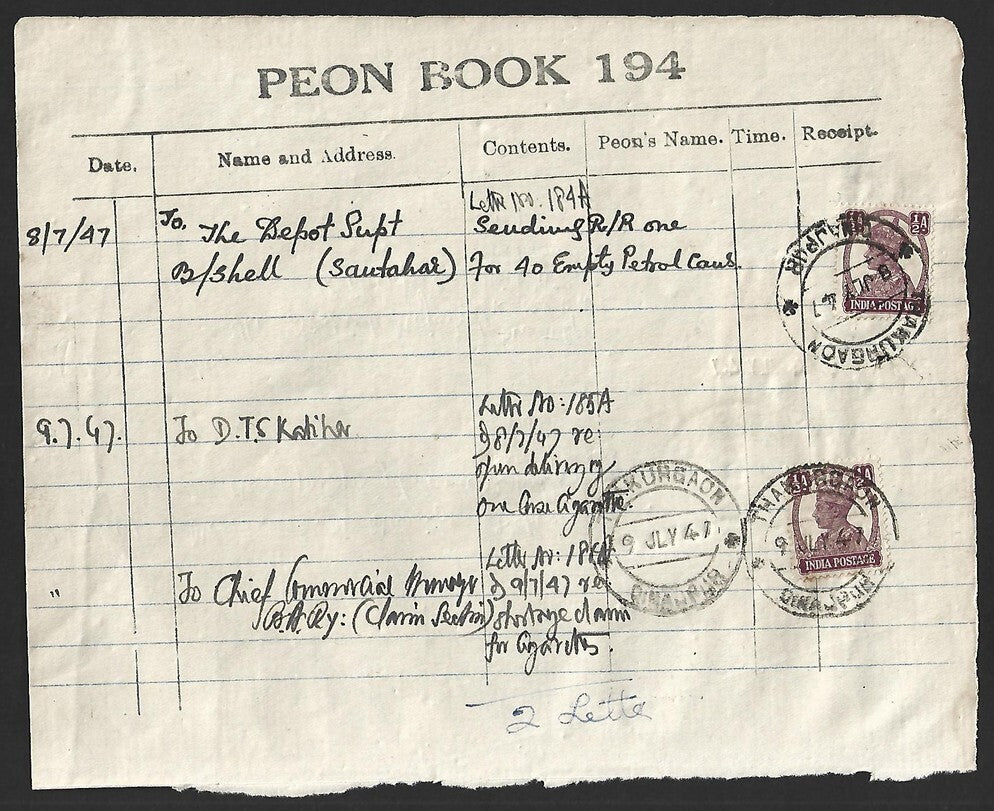 PEON BOOK 194
Date. Name and Address. Contents. Peon's Name. Time. Receipt.
Letter No. 184A
8/7/47 To. The Depot Supt Sending R/R one
B/Shell (Santahar) For 40 Empty Petrol Cans.
½A ½A
INDIA POSTAGE
THAKURGAON
8 JLY 47
DINAJPUR
Letter No: 185A
9.7.47. To D.T.S Katihar D/8/7/47 re:
open delivery of
one Case Cigarette.
THAKURGAON
9 JLY 47
DINAJPUR
THAKURGAON
9 JLY 47
DINAJPUR
½A
INDIA POSTAGE
Letter No: 186A
" To Chief Commercial Manager D/9/7/47 re
B.A.Ry: (Claim Section) shortage claim
for Cigarettes.
2 Letter